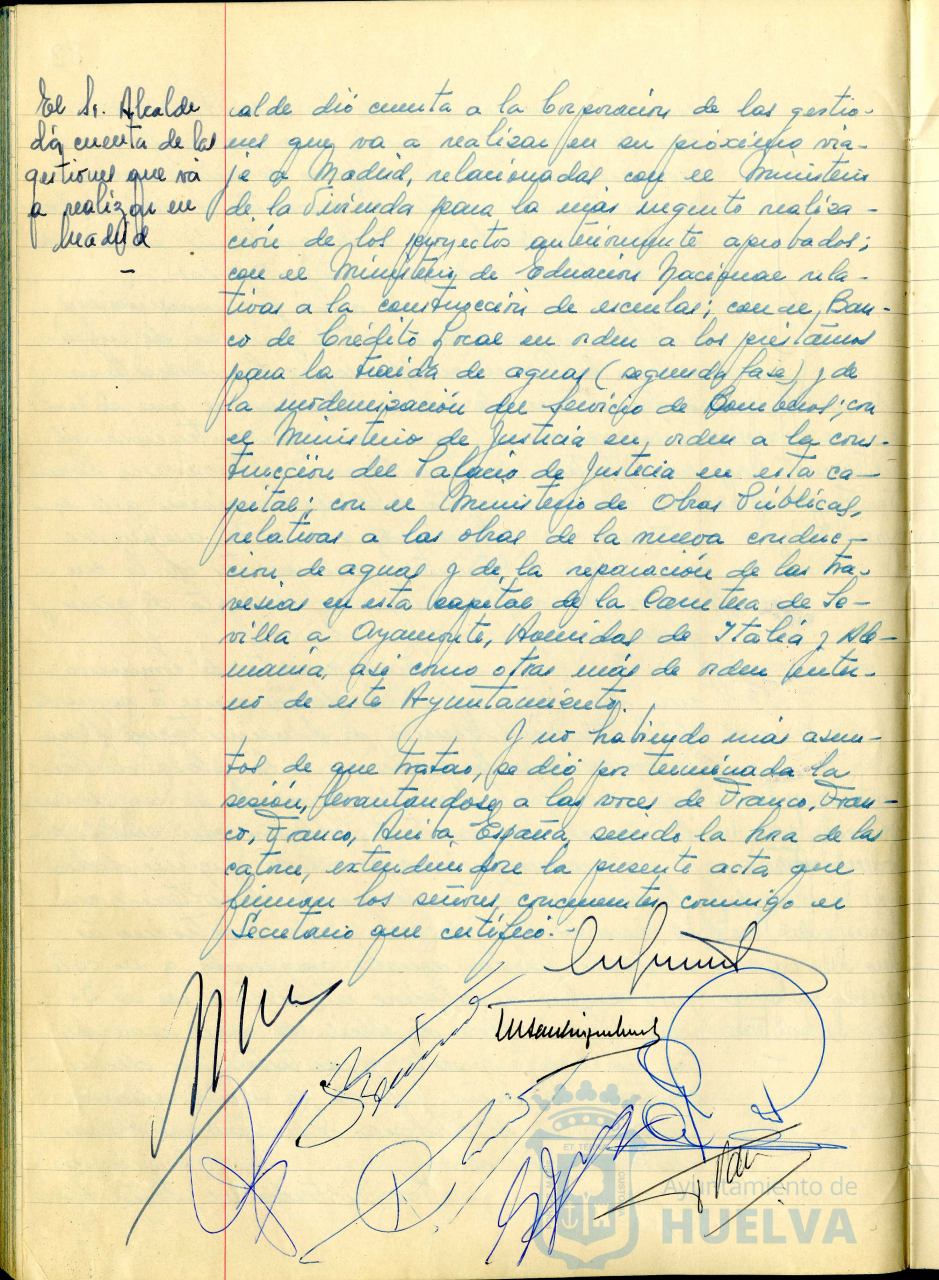 El Sr. Alcalde
da cuenta de las
gestiones que va
a realizar en
Madrid
alde dió cuenta a la Corporación de las gestio-
nes que va a realizar en su próximo via-
je a Madrid, relacionadas con el Ministerio
de la Vivienda para la más urgente realiza-
ción de los proyectos anteriormente aprobados;
con el Ministerio de Educación Nacional rela-
tivas a la construcción de escuelas; con el Ban-
co de Crédito Local en orden a los préstamos
para la traida de aguas (segunda fase) y de
la modernización del Servicio de Bomberos; con
el Ministerio de Justicia en orden a la cons-
trucción del Palacio de Justicia en esta ca-
pital; con el Ministerio de Obras Públicas,
relativas a las obras de la nueva conduc-
ción de aguas y de la reparación de las tra-
vesias en esta capital de la Carretera de Se-
villa a Ayamonte, Avenidas de Italia y Ale-
mania, asi como otras más de orden inter-
no de este Ayuntamiento.
Y no habiendo más asun-
tos de que tratar, se dió por terminada la
sesión, levantandose a las voces de Franco, Fran-
co, Franco, Arriba España, siendo la hora de las
catorce, extendiendose la presente acta que
firman los señores concurrentes conmigo el
Secretario que certifico.-
Ayuntamiento de
HUELVA